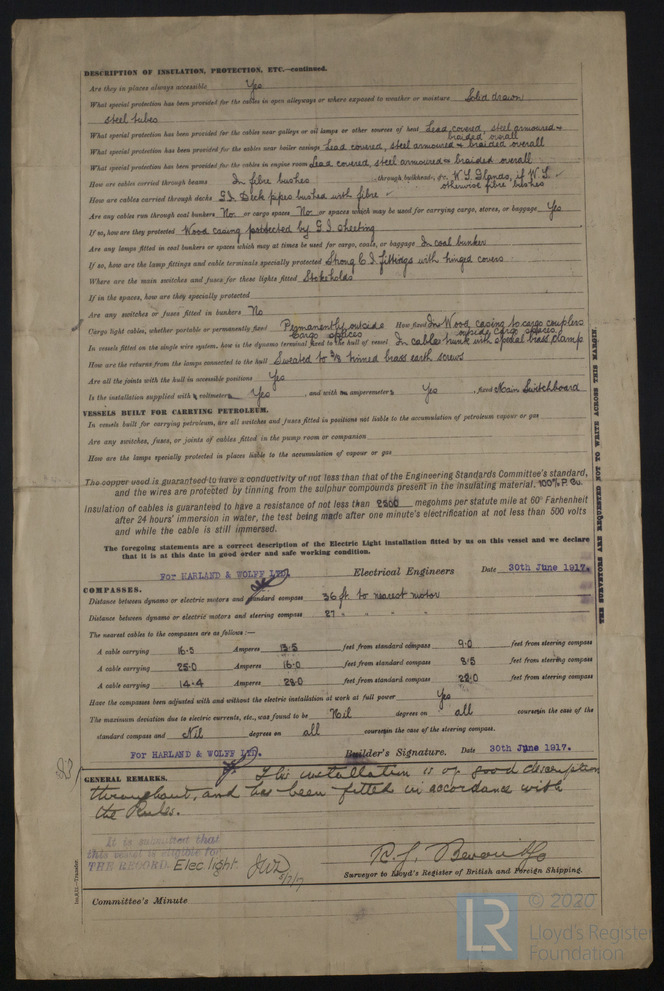 DESCRIPTION OF INSULATION, PROTECTION, ETC.—continued.
Are they in places always accessible Yes
What special protection has been provided for the cables in open alleyways or where exposed to weather or moisture Solid drawn
steel tubes
What special protection has been provided for the cables near galleys or oil lamps or other sources of heat Lead covered, steel armoured & braided overall
What special protection has been provided for the cables near boiler casings Lead covered, steel armoured & braided overall
What special protection has been provided for the cables in engine room Lead covered, steel armoured & braided overall
How are cables carried through beams In fibre bushes through bulkheads, &c. W.T. Glands, if W.T. otherwise fibre bushes
How are cables carried through decks G.I. Deck pipes bushed with fibre
Are any cables run through coal bunkers No or cargo spaces No or spaces which may be used for carrying cargo, stores, or baggage Yes
If so, how are they protected Wood casing protected by G.I. sheeting
Are any lamps fitted in coal bunkers or spaces which may at times be used for cargo, coals, or baggage In coal bunker
If so, how are the lamp fittings and cable terminals specially protected Strong C.I. fittings with hinged covers
Where are the main switches and fuses for these lights fitted Stokeholds
If in the spaces, how are they specially protected
Are any switches or fuses fitted in bunkers No
Cargo light cables, whether portable or permanently fixed Permanently outside cargo spaces How fixed In Wood casing to cargo couplers outside cargo spaces
In vessels fitted on the single wire system, how is the dynamo terminal fixed to the hull of vessel In cable trunk with special brass clamp
How are the returns from the lamps connected to the hull Sweated to 3/8 tinned brass earth screws
Are all the joints with the hull in accessible positions Yes
Is the installation supplied with a voltmeters Yes, and with an amperemeters Yes, fixed Main Switchboard
VESSELS BUILT FOR CARRYING PETROLEUM.
In vessels built for carrying petroleum, are all switches and fuses fitted in positions not liable to the accumulation of petroleum vapour or gas
Are any switches, fuses, or joints of cables fitted in the pump room or companion
How are the lamps specially protected in places liable to the accumulation of vapour or gas
The copper used is guaranteed to have a conductivity of not less than that of the Engineering Standards Committee's standard,
and the wires are protected by tinning from the sulphur compounds present in the insulating material. 100% P. Cu.
Insulation of cables is guaranteed to have a resistance of not less than 2500 megohms per statute mile at 60° Farhenheit
after 24 hours' immersion in water, the test being made after one minute's electrification at not less than 500 volts
and while the cable is still immersed.
The foregoing statements are a correct description of the Electric Light installation fitted by us on this vessel and we declare
that it is at this date in good order and safe working condition.
For HARLAND & WOLFF LTD. Electrical Engineers Date 30th June 1917.
COMPASSES.
Distance between dynamo or electric motors and standard compass 36 ft to nearest motor
Distance between dynamo or electric motors and steering compass 27 " " " "
The nearest cables to the compasses are as follows:—
A cable carrying 16.5 Amperes 13.5 feet from standard compass 9.0 feet from steering compass
A cable carrying 25.0 Amperes 16.0 feet from standard compass 8.5 feet from steering compass
A cable carrying 14.4 Amperes 28.0 feet from standard compass 22.0 feet from steering compass
Have the compasses been adjusted with and without the electric installation at work at full power Yes
The maximum deviation due to electric currents, etc., was found to be Nil degrees on all course in the case of the
standard compass and Nil degrees on all course in the case of the steering compass.
For HARLAND & WOLFF LTD. Builder's Signature. Date 30th June 1917.
GENERAL REMARKS. This installation is of good description
throughout, and has been fitted in accordance with
the Rules.
It is submitted that
this vessel is eligible for
THE RECORD. Elec light. JWD 5/7/17
Surveyor to Lloyd's Register of British and Foreign Shipping.
Committee's Minute
THE SURVEYORS ARE REQUESTED NOT TO WRITE ACROSS THIS MARGIN.
© 2020
LR
Lloyd's Register
Foundation